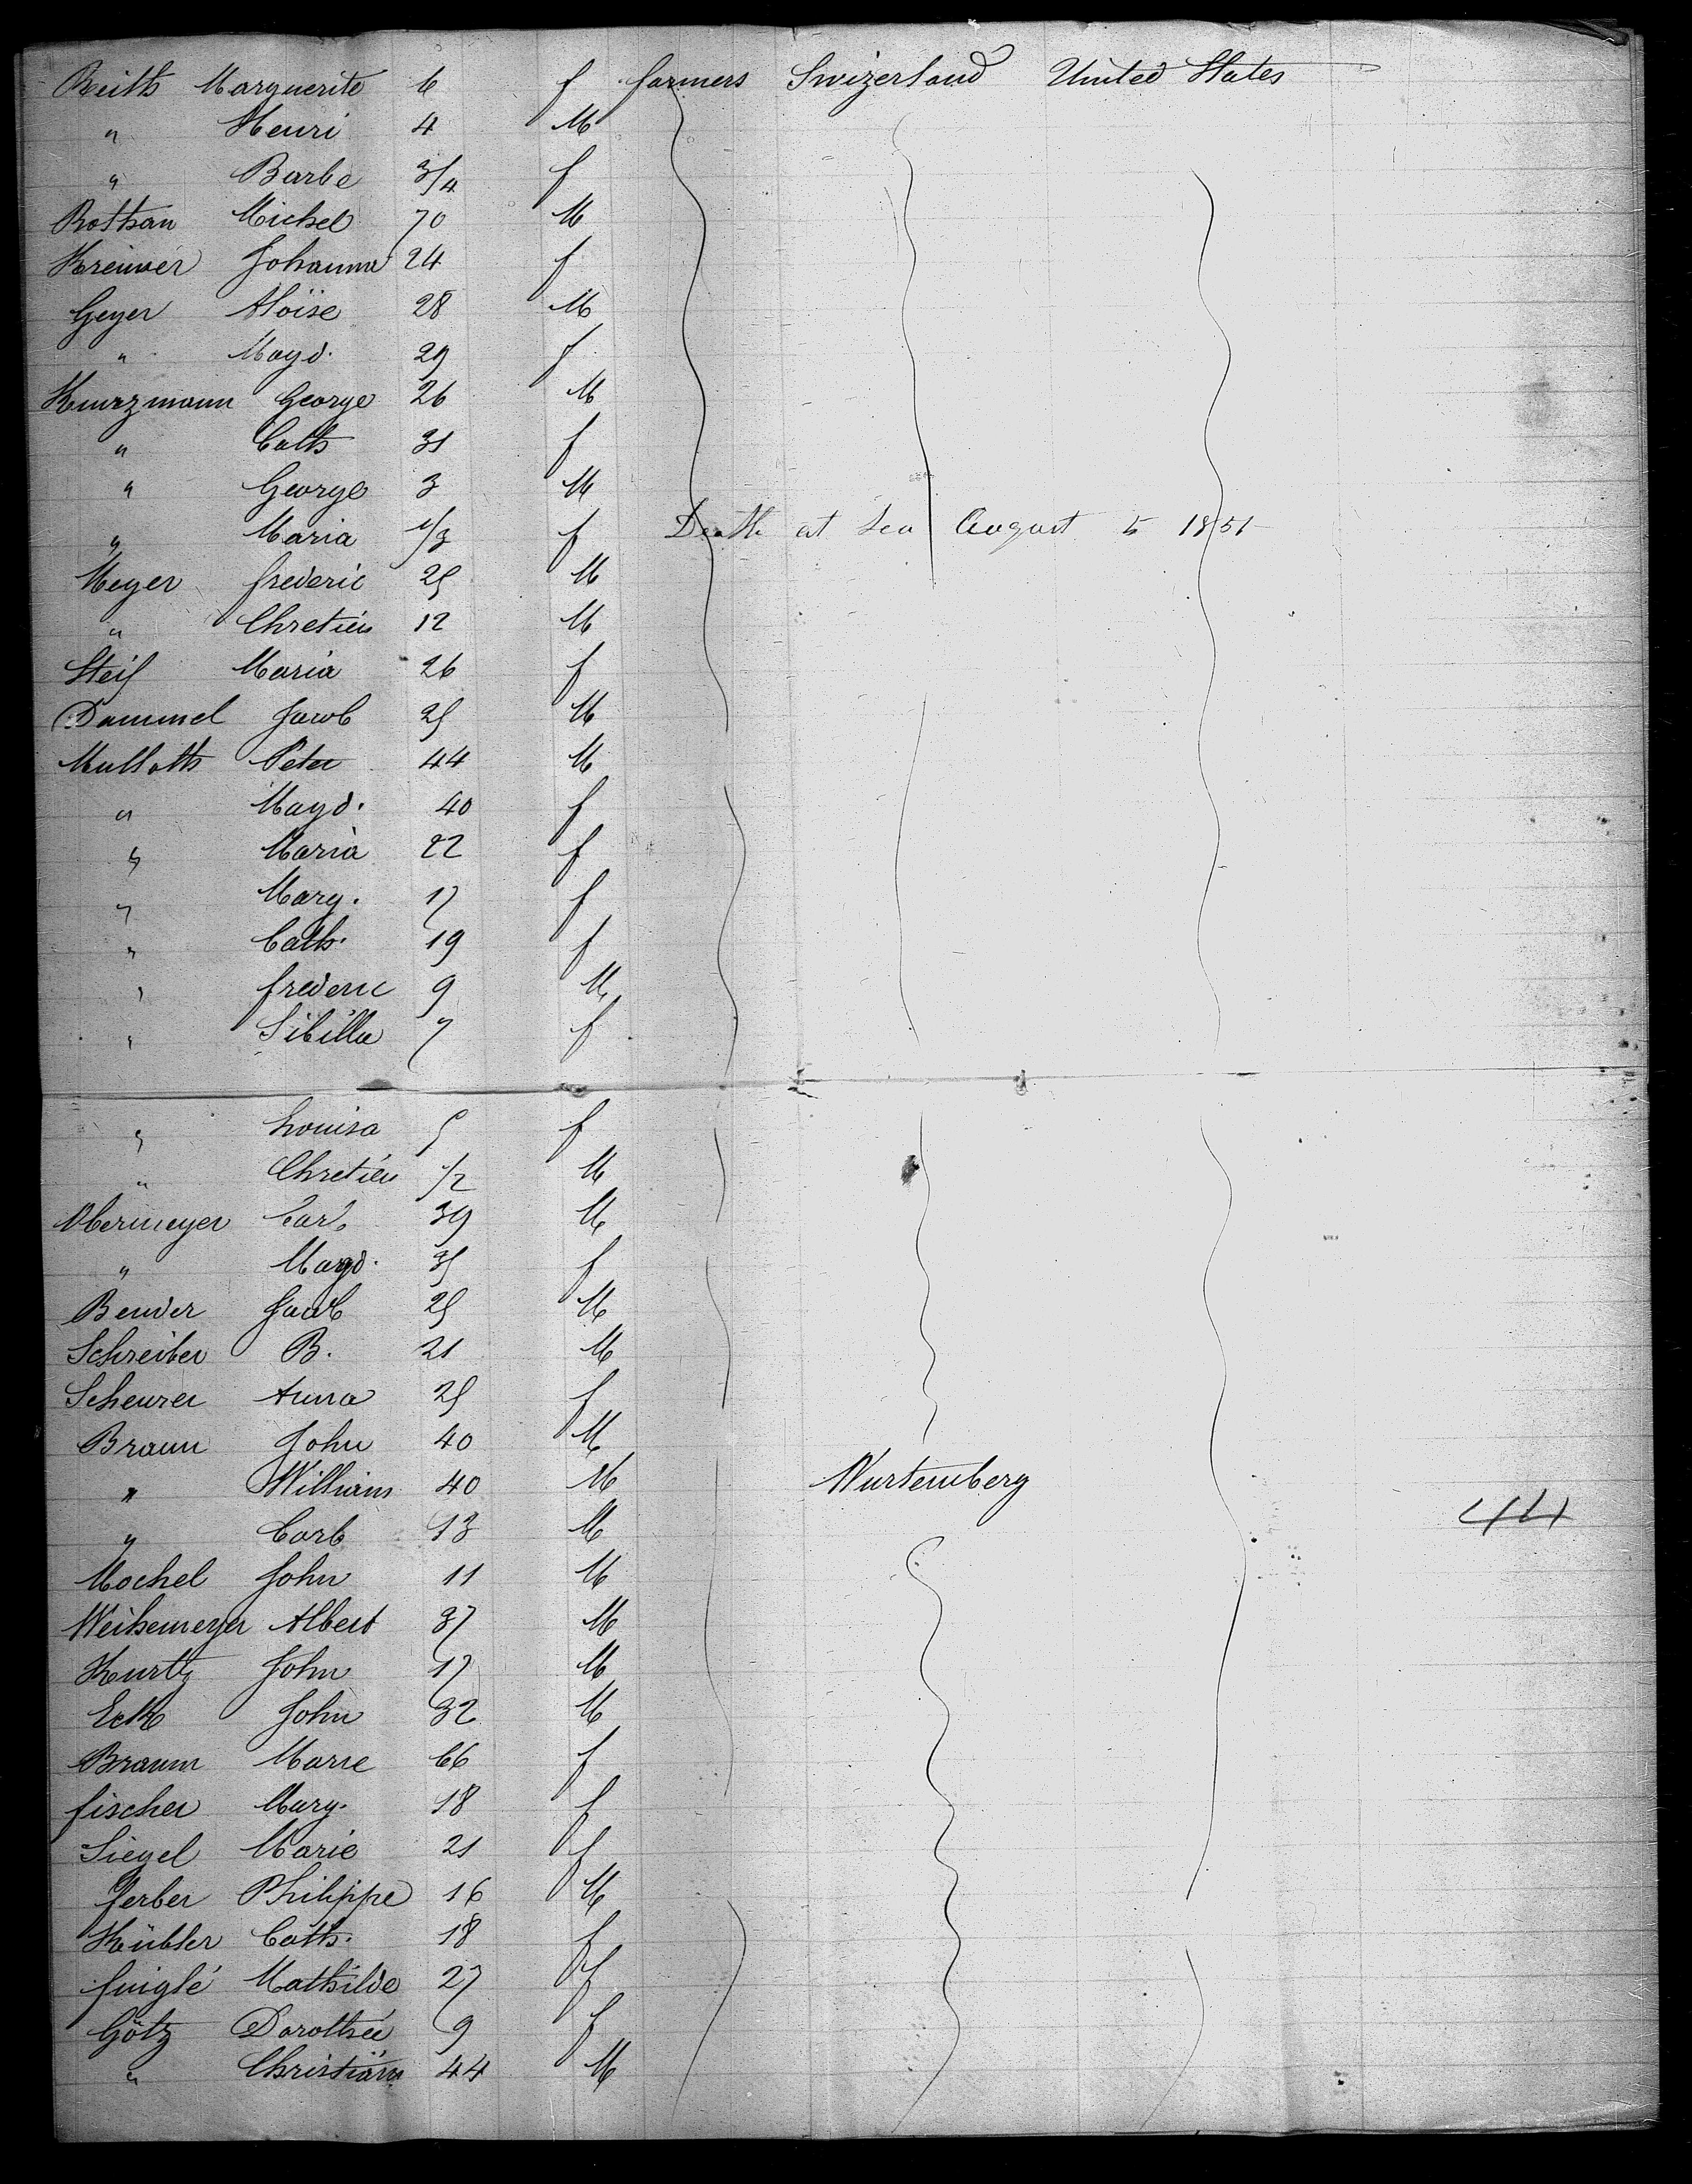 Reith Marguerite 6 f farmers Swizerland United States
" Henri 4 M
" Barbe 3/4 f
Rothan Michel 70 M
Johanna 24 f
Geyer Aloïse 28 M
" Magd. 29 f
Kurzmann George 26 M
" Cath 31 f
" George 3 M
" Maria 1/3 f Death at Sea August 5 1851
Meyer frederic 25 M
" Chretien 12 M
Steif Maria 26 f
Dammel Jacob 25 M
Mulloth Peter 44 M
" Magd. 40 f
" Maria 22 f
" Marg. 17 f
" Cath. 19 f
" frederic 9 M
" Sibilla 7 f
" Louisa 5 f
" Chretien 1/2 M
Obermeyer Carl 39 M
" Magd. 35 f
Bender Jacob 25 M
Schreiber B. 21 M
Scheurer Anna 25 f
Braun John 40 M
" William 40 M Wurtemberg
" Carl 13 M 44
Mochel John 11 M
Weihemeyer Albert 37 M
Kurtz John 17 M
Eck John 32 M
Braun Marie 66 f
fischer Marg. 18 f
Siegel Marie 21 f
ferber Philippe 16 M
Kübler Cath. 18 f
Mathilde 27 f
Götz Dorothée 9 f
" Christian 44 M